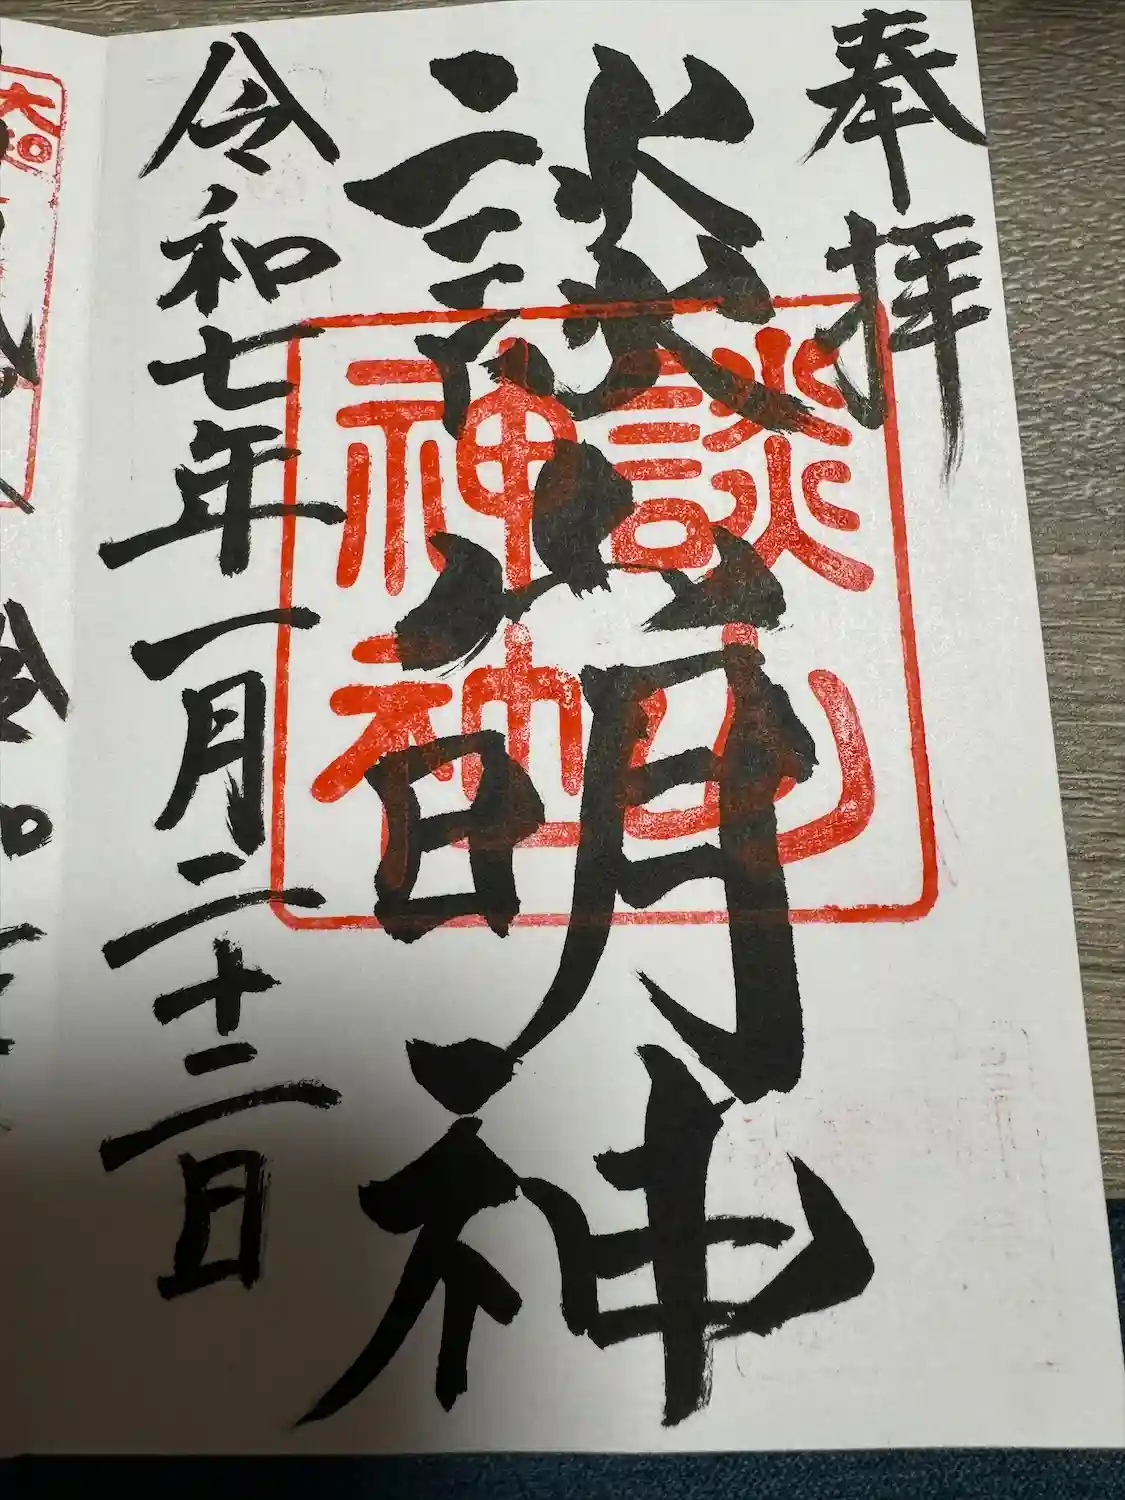 奉拝
談山明神
談山神社
令和七年一月二十二日